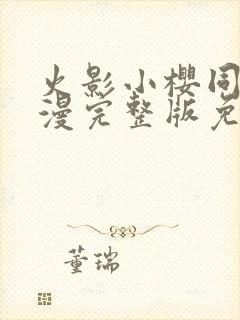 火影小樱同
漫完整版免
董瑞